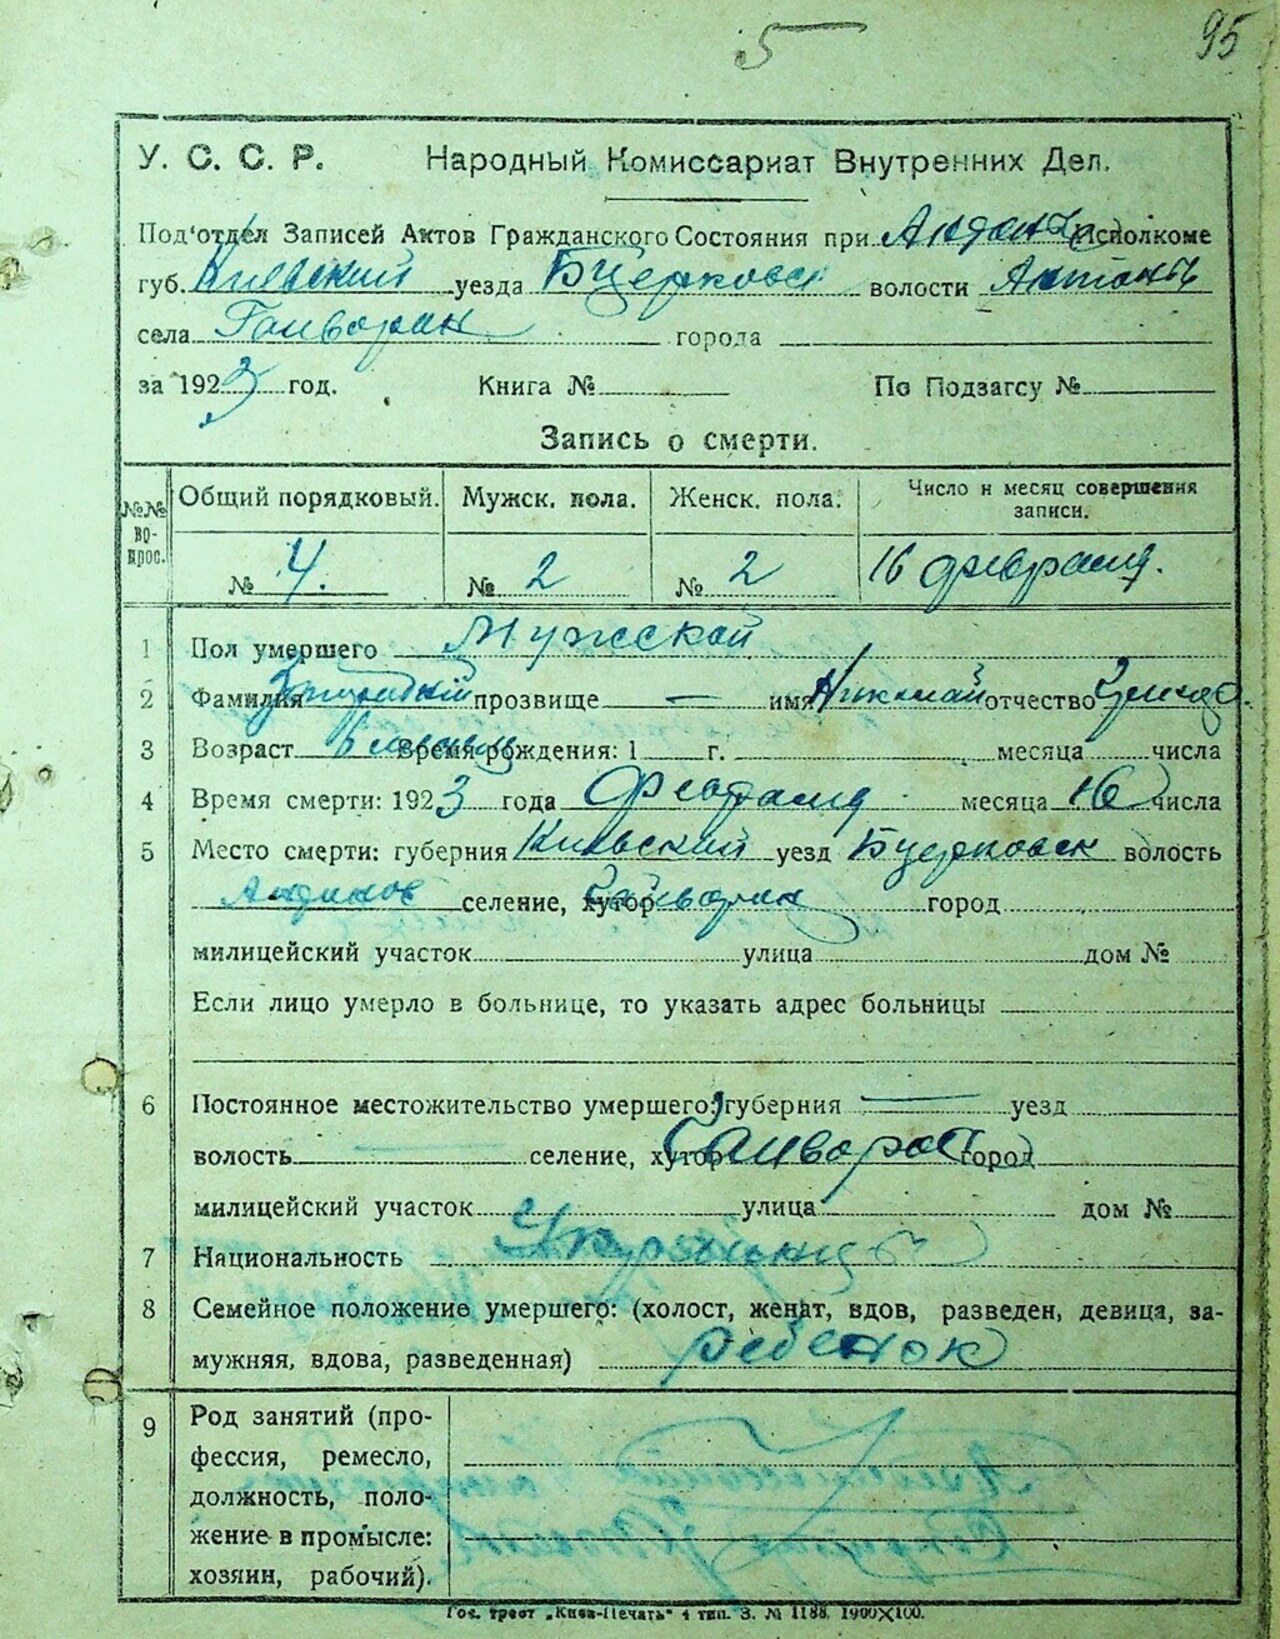 5
95
У. С. С. Р. Народный Комиссариат Внутренних Дел.
Под'отдел Записей Актов Гражданского Состояния при Исполкоме
губ. Киевский уезда Бцерковск волости
села Гайворон города
за 1923 год. Книга № По Подзагсу №
Запись о смерти.
№№ вопрос. Общий порядковый. Мужск. пола. Женск. пола. Число и месяц совершения записи.
№ 4. № 2 № 2 16 февраля.
1 Пол умершего Мужской
2 Фамилия прозвище — имя Николай отчество
3 Возраст 6 Время рождения: 1 г. месяца числа
4 Время смерти: 1923 года Февраля месяца 16 числа
5 Место смерти: губерния Киевский уезд Бцерковск волость
селение, хутор Гайворон город
милицейский участок улица дом №
Если лицо умерло в больнице, то указать адрес больницы
6 Постоянное местожительство умершего: губерния — уезд
волость — селение, хутор Гайворон город
милицейский участок улица дом №
7 Национальность Украинец
8 Семейное положение умершего: (холост, женат, вдов, разведен, девица, за-
мужняя, вдова, разведенная) ребенок
9 Род занятий (про-
фессия, ремесло,
должность, поло-
жение в промысле:
хозяин, рабочий).
Гос. трест „Киев-Печать" 4 тип. З. № 1188. 1900×100.